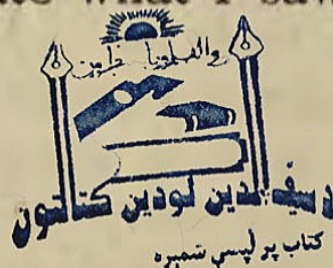 what I
والقلم وما یسطرون
د سیف الدین لودین کتابتون
کتاب پرلپسې شمېره